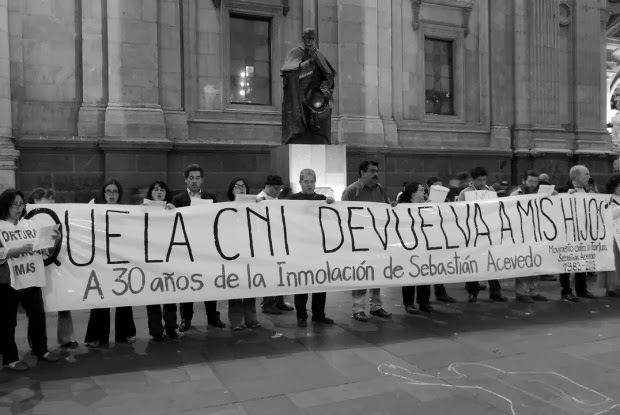 QUE LA CNI DEVUELVA A MIS HIJOS
A 30 años de la Inmolación de Sebastián Acevedo
Movimiento contra la Tortura
Sebastián Acevedo
MAS